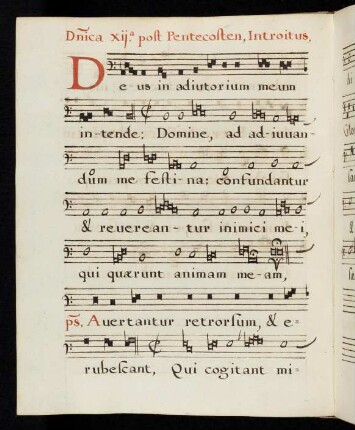 Dñica Xij.ª post Pentecosten, Introitus,
Deus in adiutorium meum
in-tende: Domine, ad ad-iuuan-
dùm me festi-na: confundantur
& reuerean-tur inimici me-i,
qui quærunt animam me-am,
ps. Auertantur retrorsum, & e-
rubescant, Qui cogitant mi-